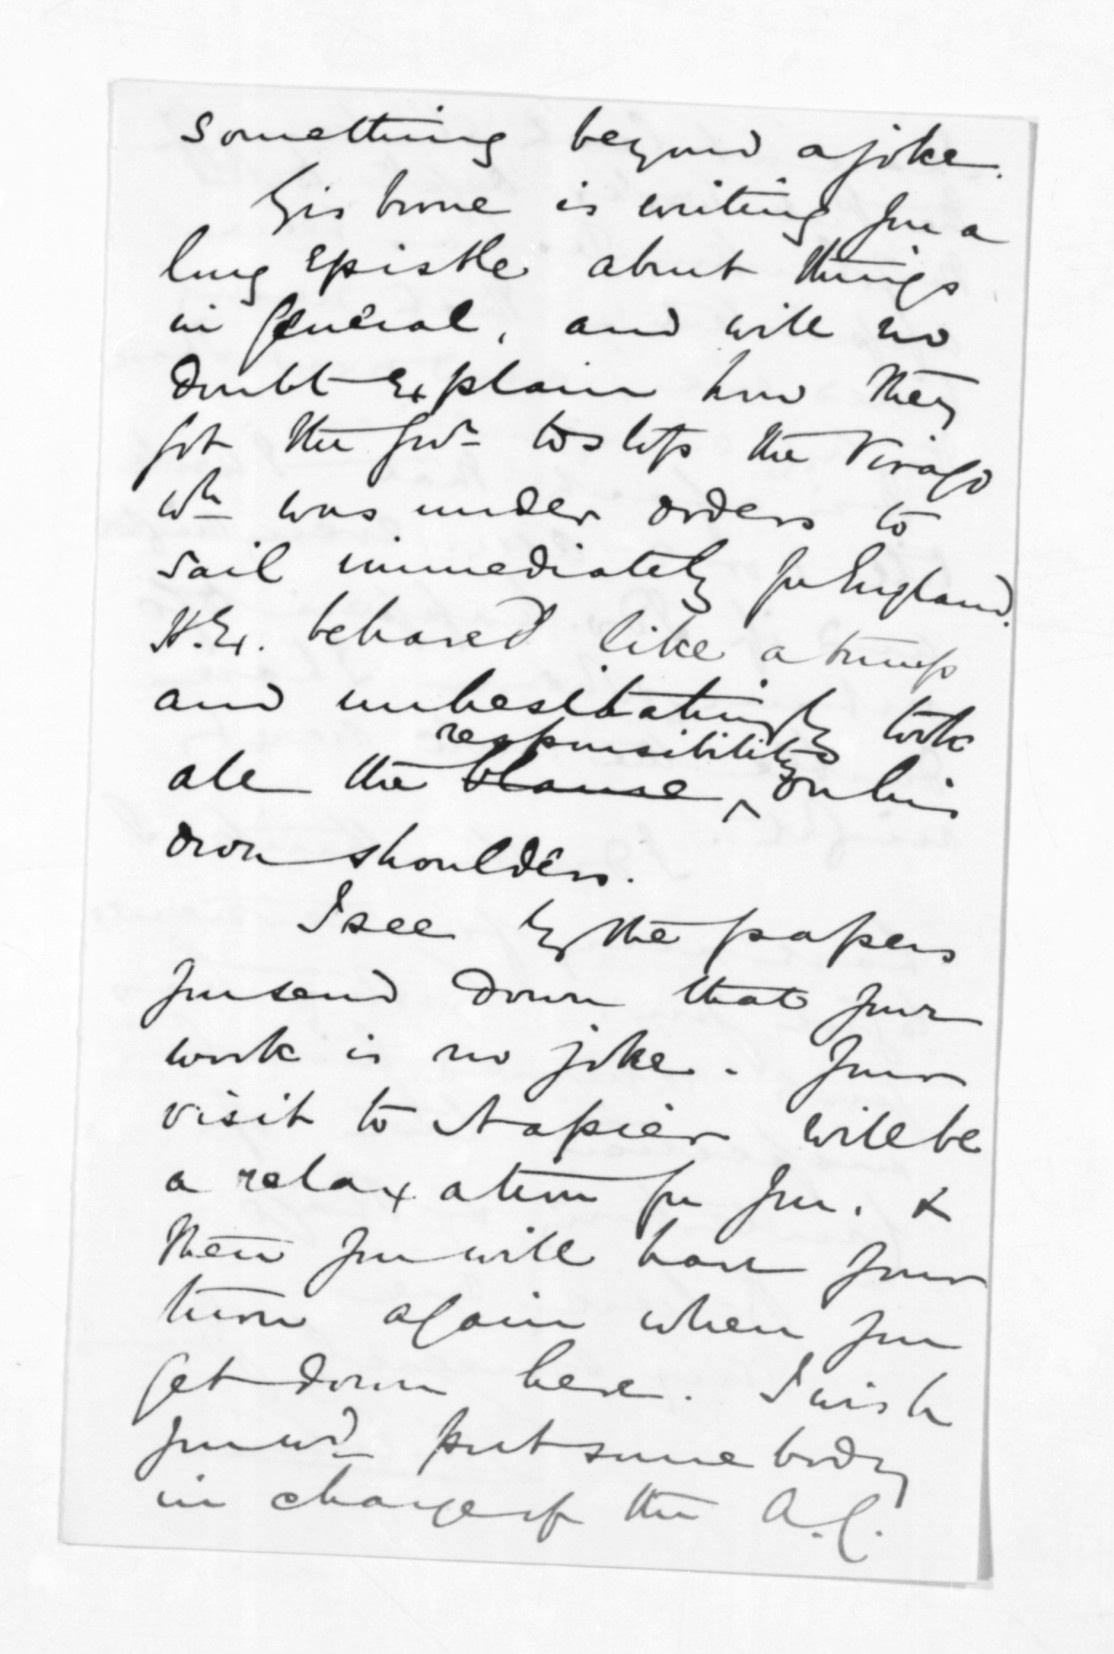 something beyond a joke.
Gisborne is writing you a
long epistle about things
in general, and will no
doubt explain how they
got the Govr to stop the Virago
wh was under orders to
sail immediately for England.
H.Ex. behaved like a trump
and unhesitatingly took
responsibility
all the blame on his
own shoulders.
I see by the papers
you send down that your
work is no joke. Your
visit to Napier will be
a relaxation for you. &
then you will have your
turn again when you
get down here. I wish
you wd put some body
in charge of the A.C.